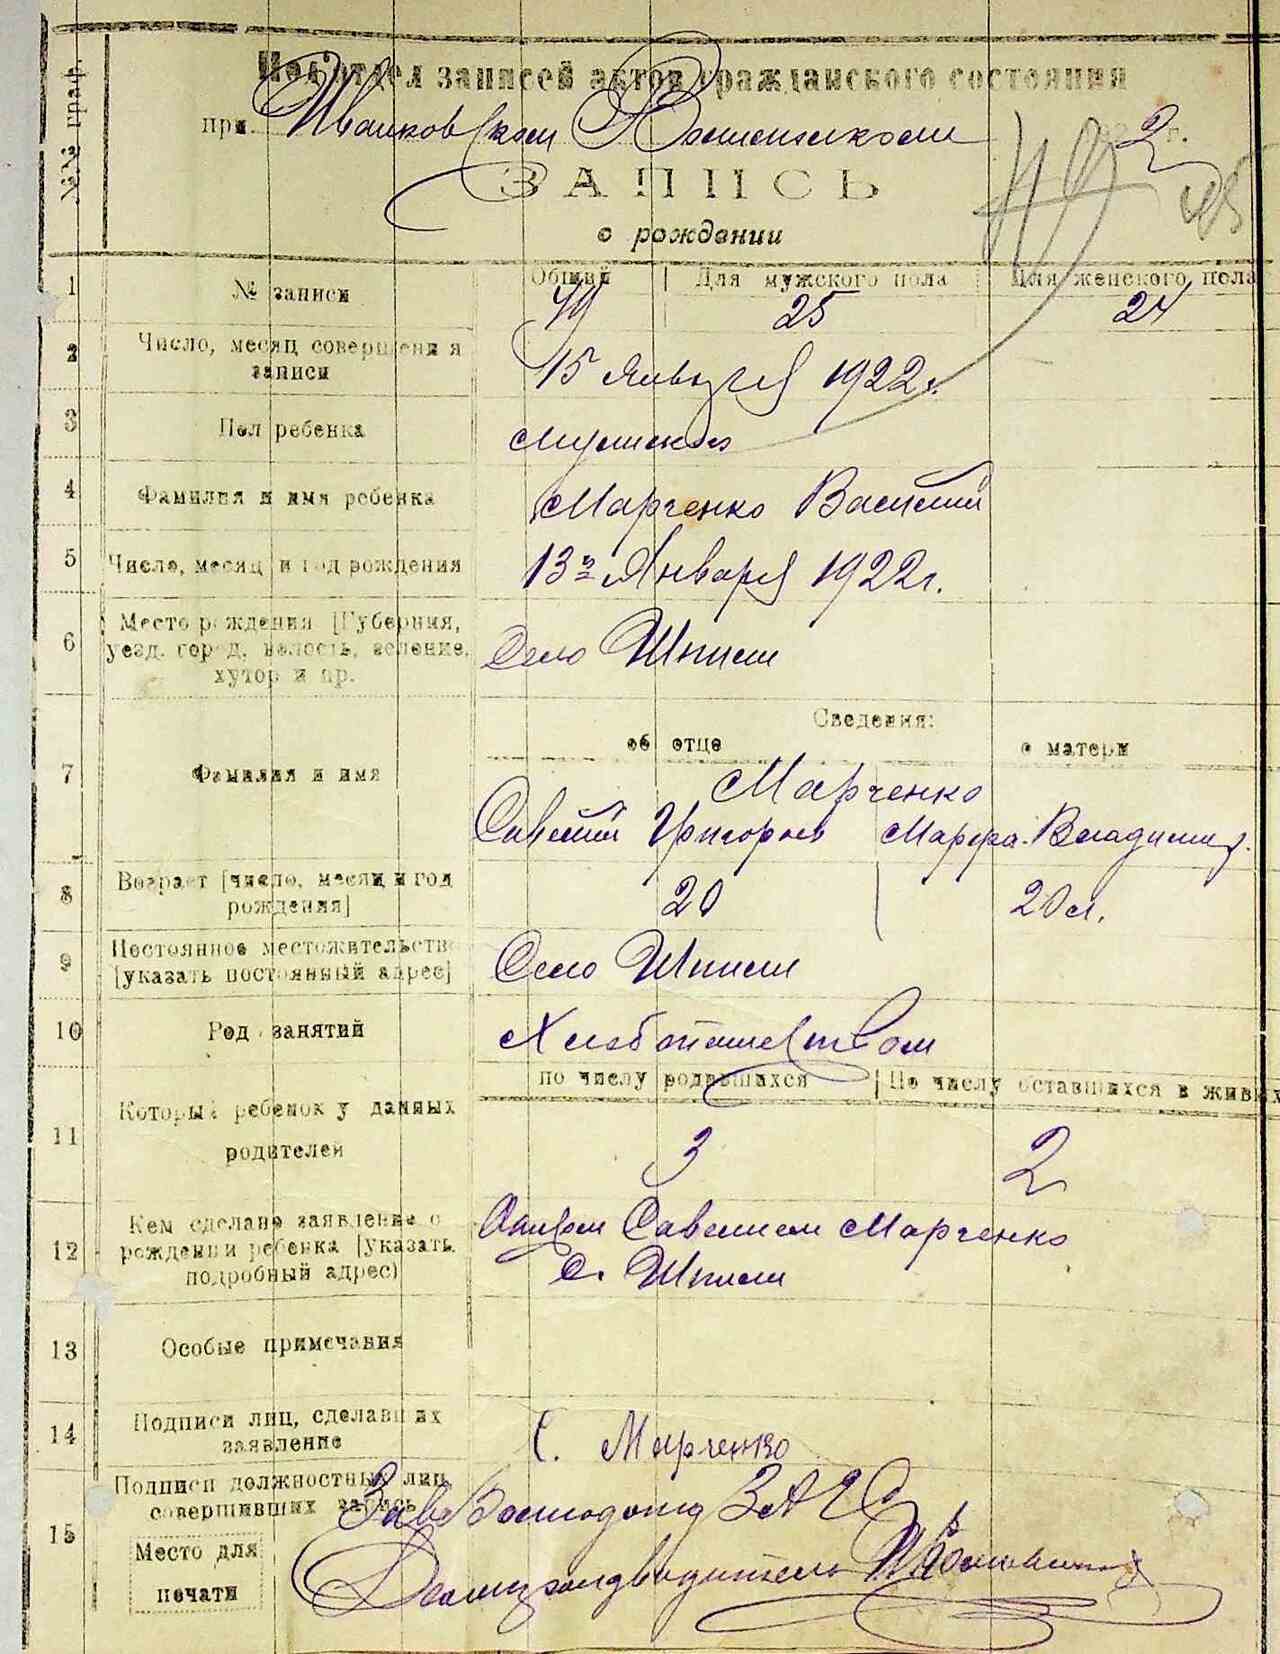 №№ граф.
Подотдел записей актов гражданского состояния
при Иванковском Волисполкоме 1922 г.
ЗАПИСЬ
о рождении
1 № записи Общий Для мужского пола Для женского пола
49 25 24
2 Число, месяц совершения
записи
15 Января 1922 г.
3 Пол ребенка
мужской
4 Фамилия и имя ребенка
Марченко Василий
5 Число, месяц и год рождения
13го Января 1922 г.
6 Место рождения [Губерния,
уезд, город, волость, селение,
хутор и пр.
Село Шпили
Сведения:
об отце о матери
7 Фамилия и имя
Марченко
Савелий Григорьев Марфа Владимир.
8 Возраст [число, месяц и год
рождения]
20 20 л.
9 Постоянное местожительство
[указать постоянный адрес]
Село Шпили
10 Род занятий
Хлебопашеством
по числу родившихся По числу оставшихся в живых
11 Который ребенок у данных
родителей
3 2
12 Кем сделано заявление о
рождении ребенка [указать
подробный адрес)
Отцом Савелием Марченко
с. Шпили
13 Особые примечания
14 Подписи лиц, сделавших
заявление
С. Марченко
15 Подписи должностных лиц,
совершивших запись
Зав. Волподотд ЗАГС
Место для
печати
Делопроизводитель